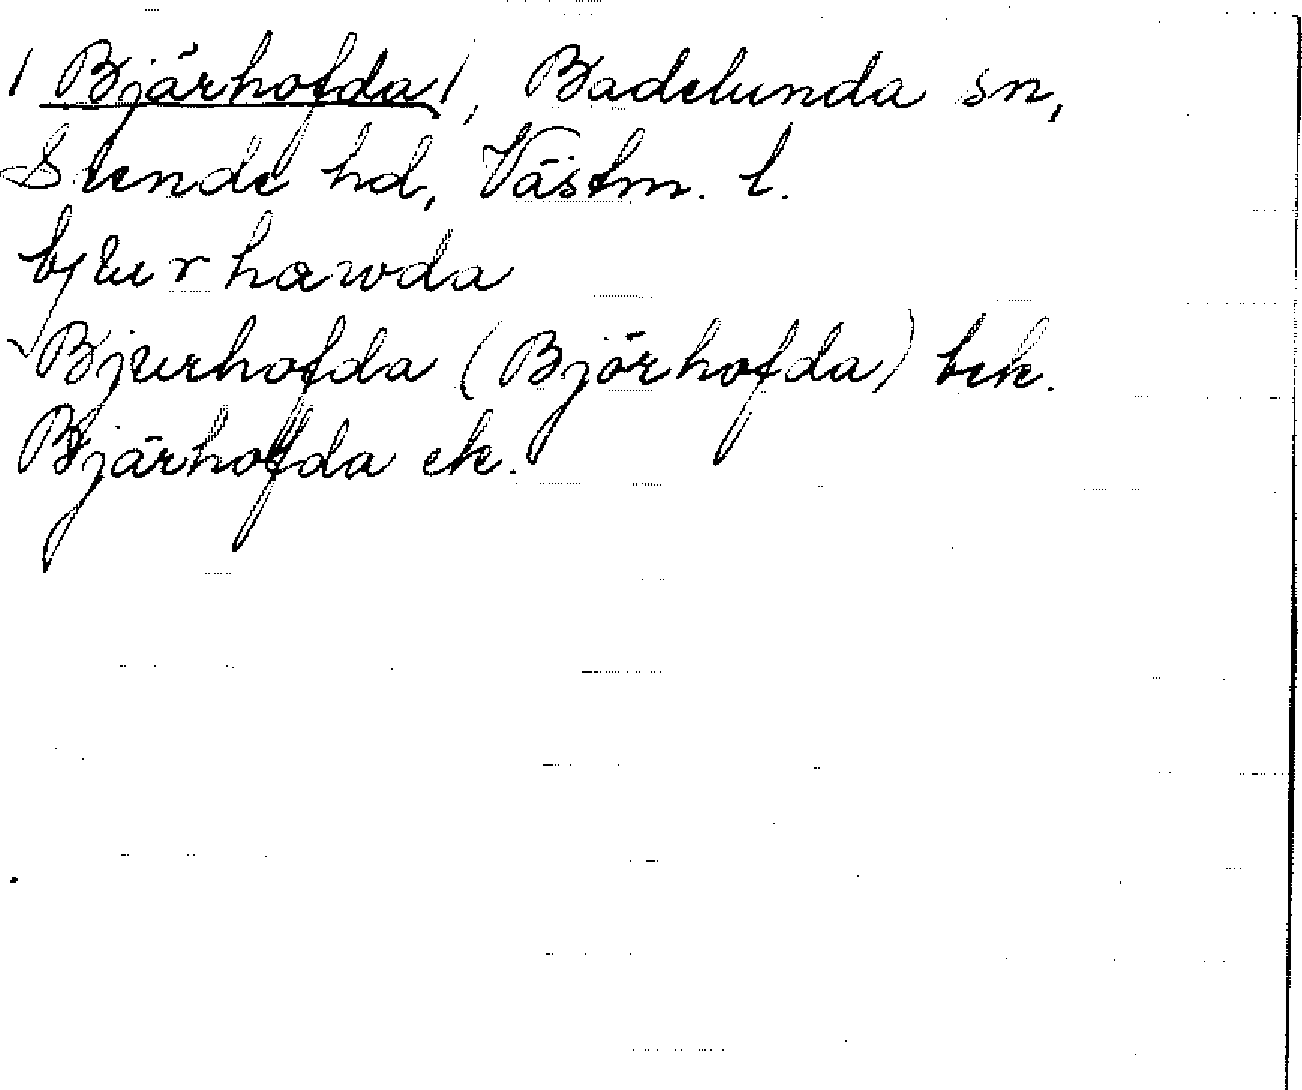 / Bjärhofda /, Badelunda sn,
Siende hd, Västm. l.
bjurhawda
Bjurhofda (Björhofda) bek.
Bjärhofda ek.